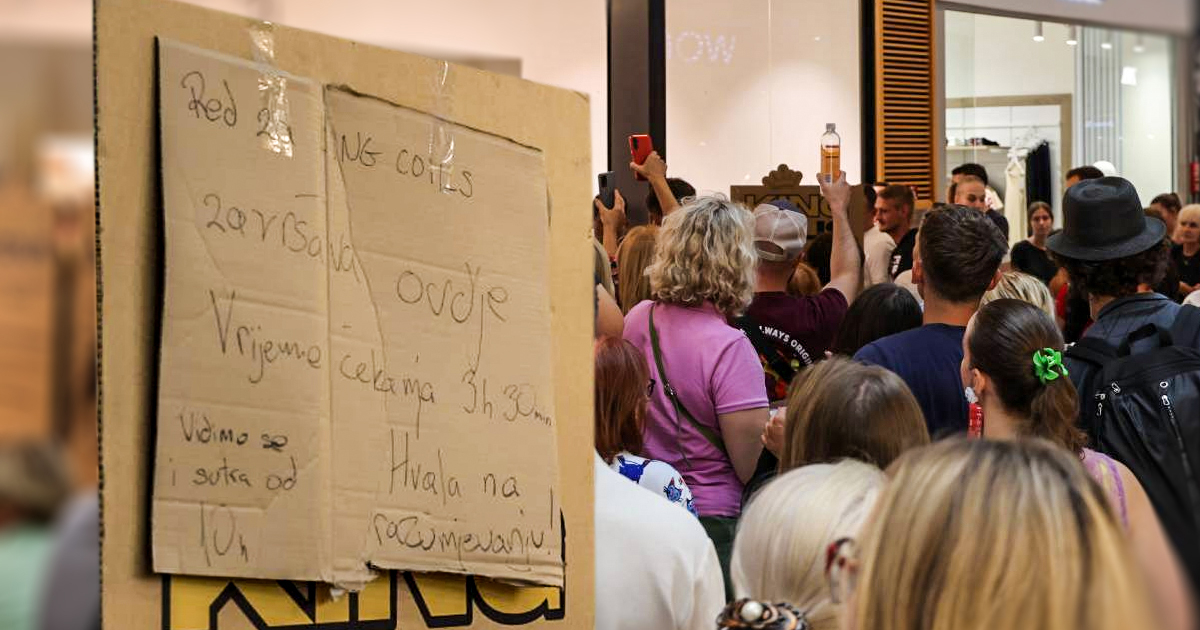 Red za KING COILS
završava ovdje
Vrijeme čekanja 3h 30min
Vidimo se
i sutra od
10h
Hvala na
razumjevanju!
KING
NOW
KING
ALWAYS ORIGIN